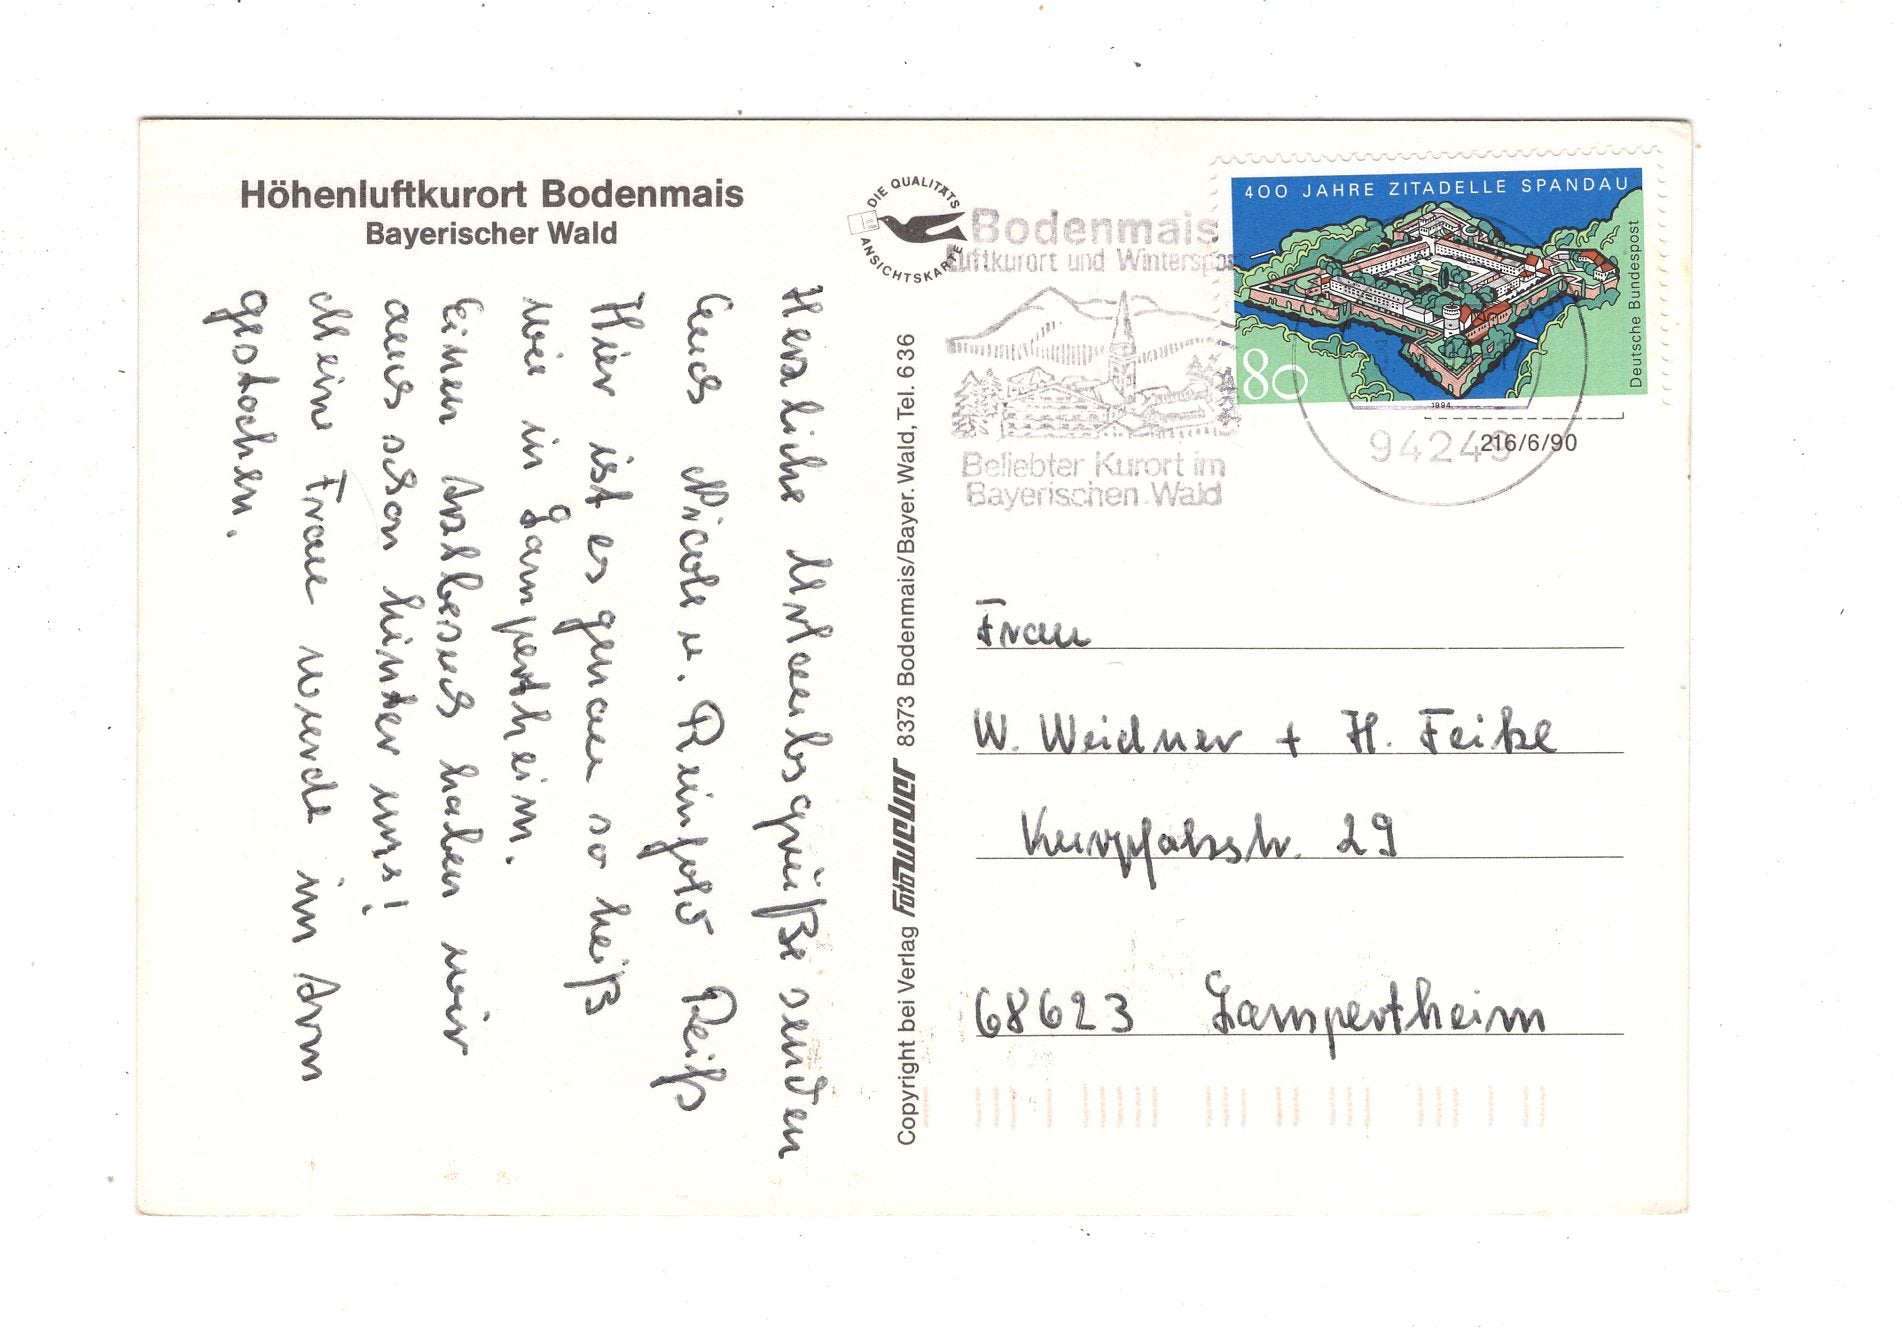 Höhenluftkurort Bodenmais
Bayerischer Wald
Herzliche Urlaubsgrüße senden
Euch Nicole u. Reinhold Reiß
Hier ist es genau so heiß
wie in Lampertheim.
Einen Arztbesuch haben wir
auch schon hinter uns!
Meine Frau wurde im Arm
gestochen.
DIE QUALITÄTS
ANSICHTSKARTE
Copyright bei Verlag Foto WEBER 8373 Bodenmais/Bayer. Wald, Tel. 636
Bodenmais
Luftkurort und Wintersport
Beliebter Kurort im
Bayerischen Wald
400 JAHRE ZITADELLE SPANDAU
Deutsche Bundespost
80
1994
94249
216/6/90
Frau
W. Weidner + H. Feike
Kurpfalzstr. 29
68623 Lampertheim